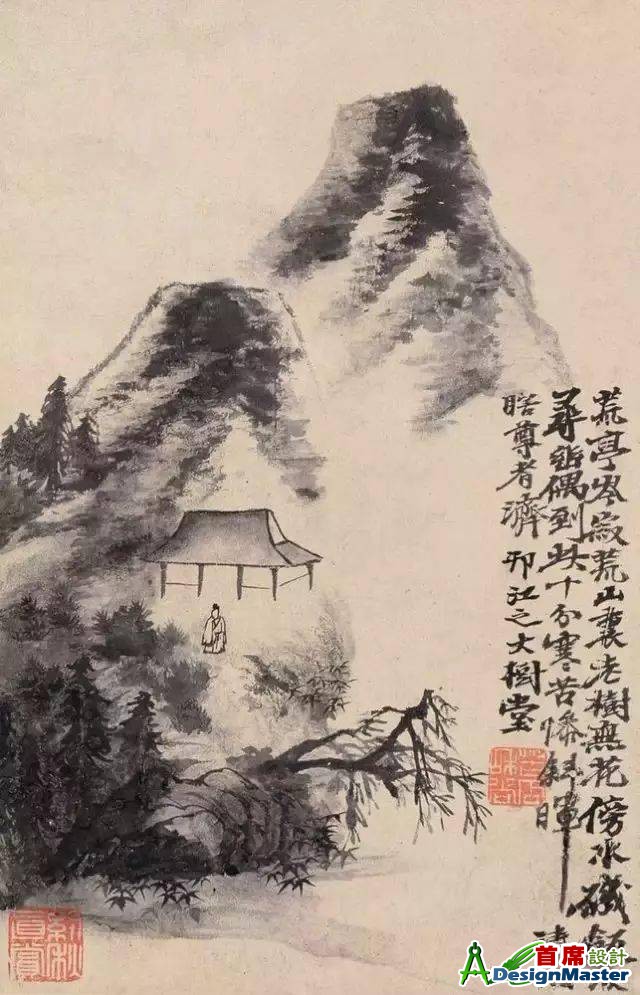 荒亭岑寂荒山裏老樹無花傍水磯
尋遊偶到此十分寒苦惨斜暉
瞎尊者濟邗江之大樹堂
首席設計
DesignMaster